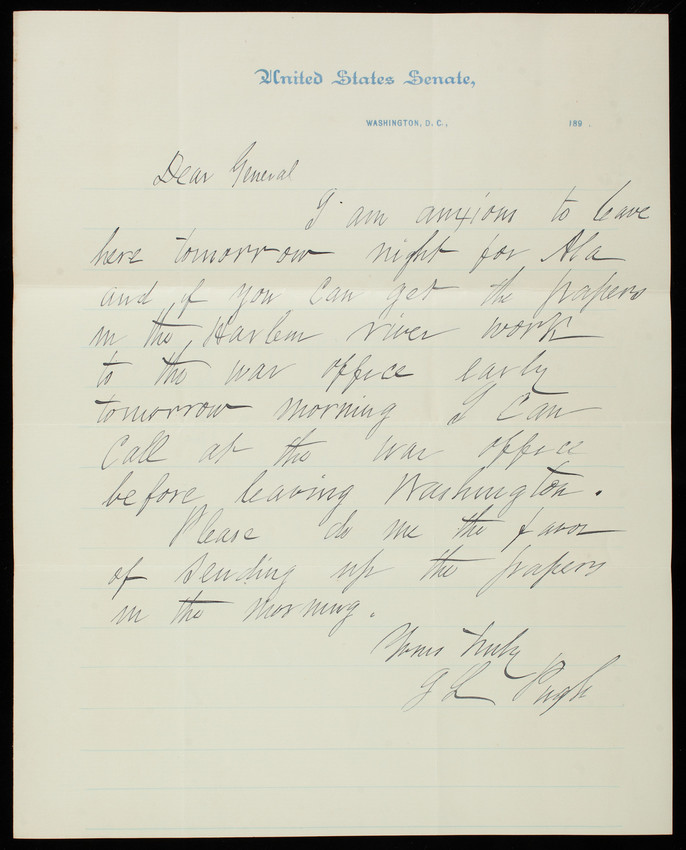 United States Senate,
WASHINGTON, D. C., 189 .
Dear General
I am anxious to leave
here tomorrow night for Ala
and if you can get the papers
in the Harlem river work
to the war office early
tomorrow morning I can
call at the war office
before leaving Washington.
Please do me the favor
of sending up the papers
in the morning.
Yours truly
J L Pugh